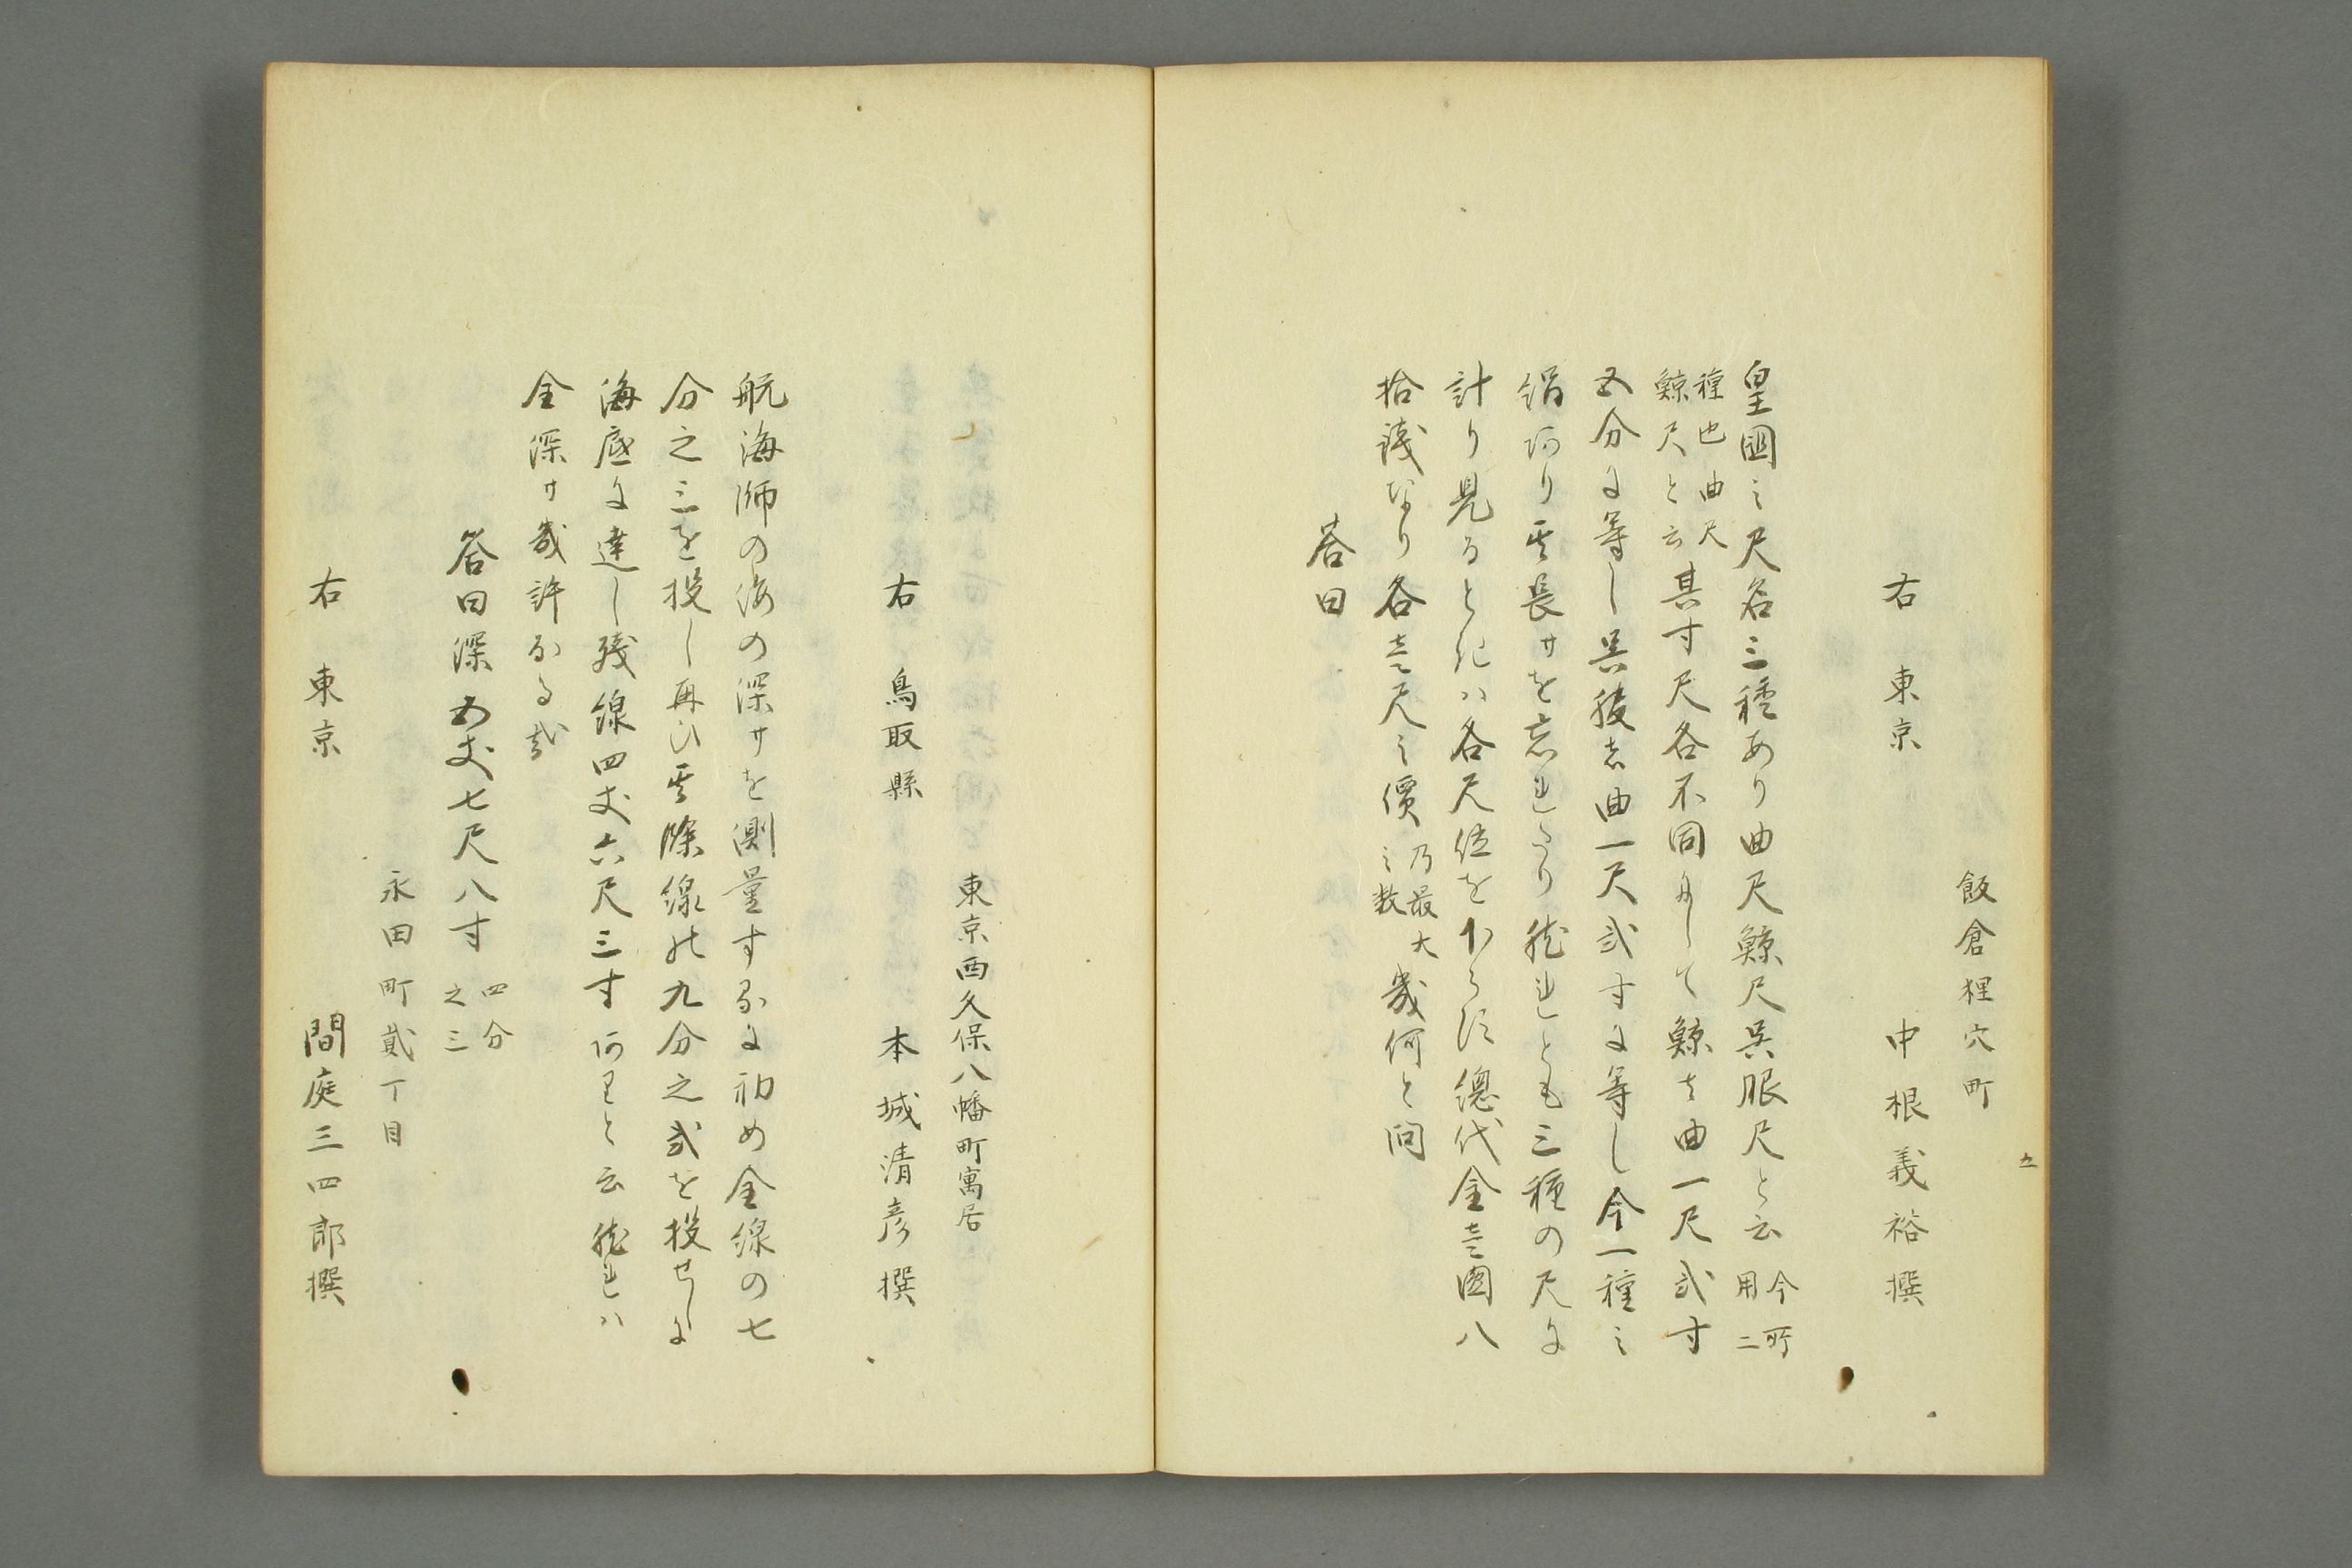 飯倉狸穴町
右 東京 中根義裕撰
皇國之尺名三種あり曲尺鯨尺呉服尺と云今所用二
種也曲尺鯨尺と云其寸尺各不同にして鯨者曲一尺弐寸
五分に等し呉服者曲一尺弐寸に等し今一種之
絹阿り其長サを忘れたり然れとも三種の尺に
計り見るときハ各尺位を下らす總代金壱圓八
拾錢なり各壱尺之價乃最大之数幾何と問
荅曰
五
東京西久保八幡町寓居
右 鳥取縣 本城清彦撰
航海師の海の深サを測量するに初め全線の七
分之三を投し再ひ其餘線の九分之弐を投せしに
海底に達し残線四丈六尺三寸阿りと云然れハ
全深サ幾許なる哉
答曰深五丈七尺八寸四分之三
永田町貮丁目
右 東京 間庭三四郎撰